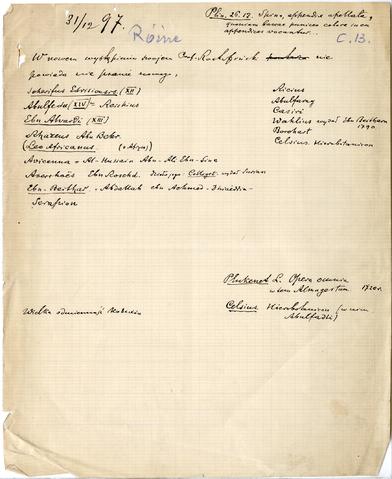 31/12 97.
Różne
Plin. 25.12. Spina, appendix appellata,
quoniam baccae puniceo colore in ea
appendices vocantur.
C. 13.
W nowem wystąpieniu swojem Prof. Rostafiński nie
powiada nic prawie nowego,
Scherifus Ebrisionare (XII)
Abulfeda (XIV) = Reiskius
Ebn Alvardi (XIII)
Rhazeus Abu Bekr.
(Leo Africanus (o Afryce)
Avicenna = Al-Hussain Abu-Ali Ebn-Sina
Averrhoës Ebn Roschd. Colliget.
Ebn-Beithar. Abdallah ebn Achmed-Dhiaeddin-
Serapion
Aicius
Abulfarag
Casiri
Wahlius wydał Ebn Beitharn
1790
Bochart
Celsius Hierobotanicon
Plukenet L. Opera omnia
w tem Almagestum 1720r.
Celsius Hierobotanicon (w niem
Abulfadli)
Wielka odmienność